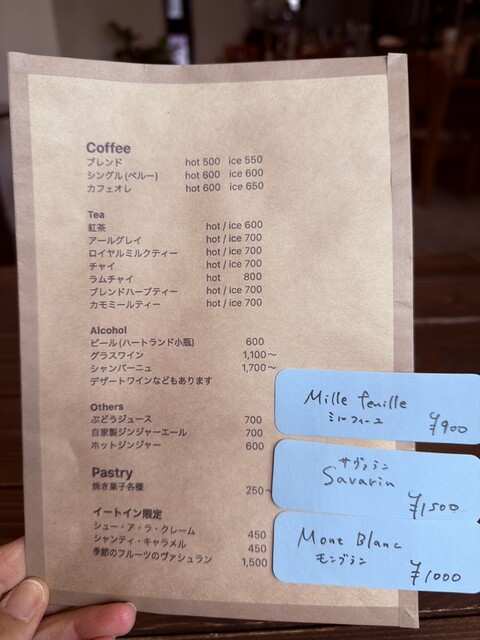 Coffee
ブレンド hot 500 ice 550
シングル(ペルー) hot 600 ice 600
カフェオレ hot 600 ice 650
Tea
紅茶 hot / ice 600
アールグレイ hot / ice 700
ロイヤルミルクティー hot / ice 700
チャイ hot / ice 700
ラムチャイ hot 800
ブレンドハーブティー hot / ice 700
カモミールティー hot / ice 700
Alcohol
ビール(ハートランド小瓶) 600
グラスワイン 1,100〜
シャンパーニュ 1,700〜
デザートワインなどもあります
Others
ぶどうジュース 700
自家製ジンジャーエール 700
ホットジンジャー 600
Pastry
焼き菓子各種 250〜
イートイン限定
シュー・ア・ラ・クレーム 450
シャンティ・キャラメル 450
季節のフルーツのヴァシュラン 1,500
Mille feuille
ミルフィーユ
¥900
サヴァラン
Savarin
¥1500
Mont Blanc
モンブラン
¥1000